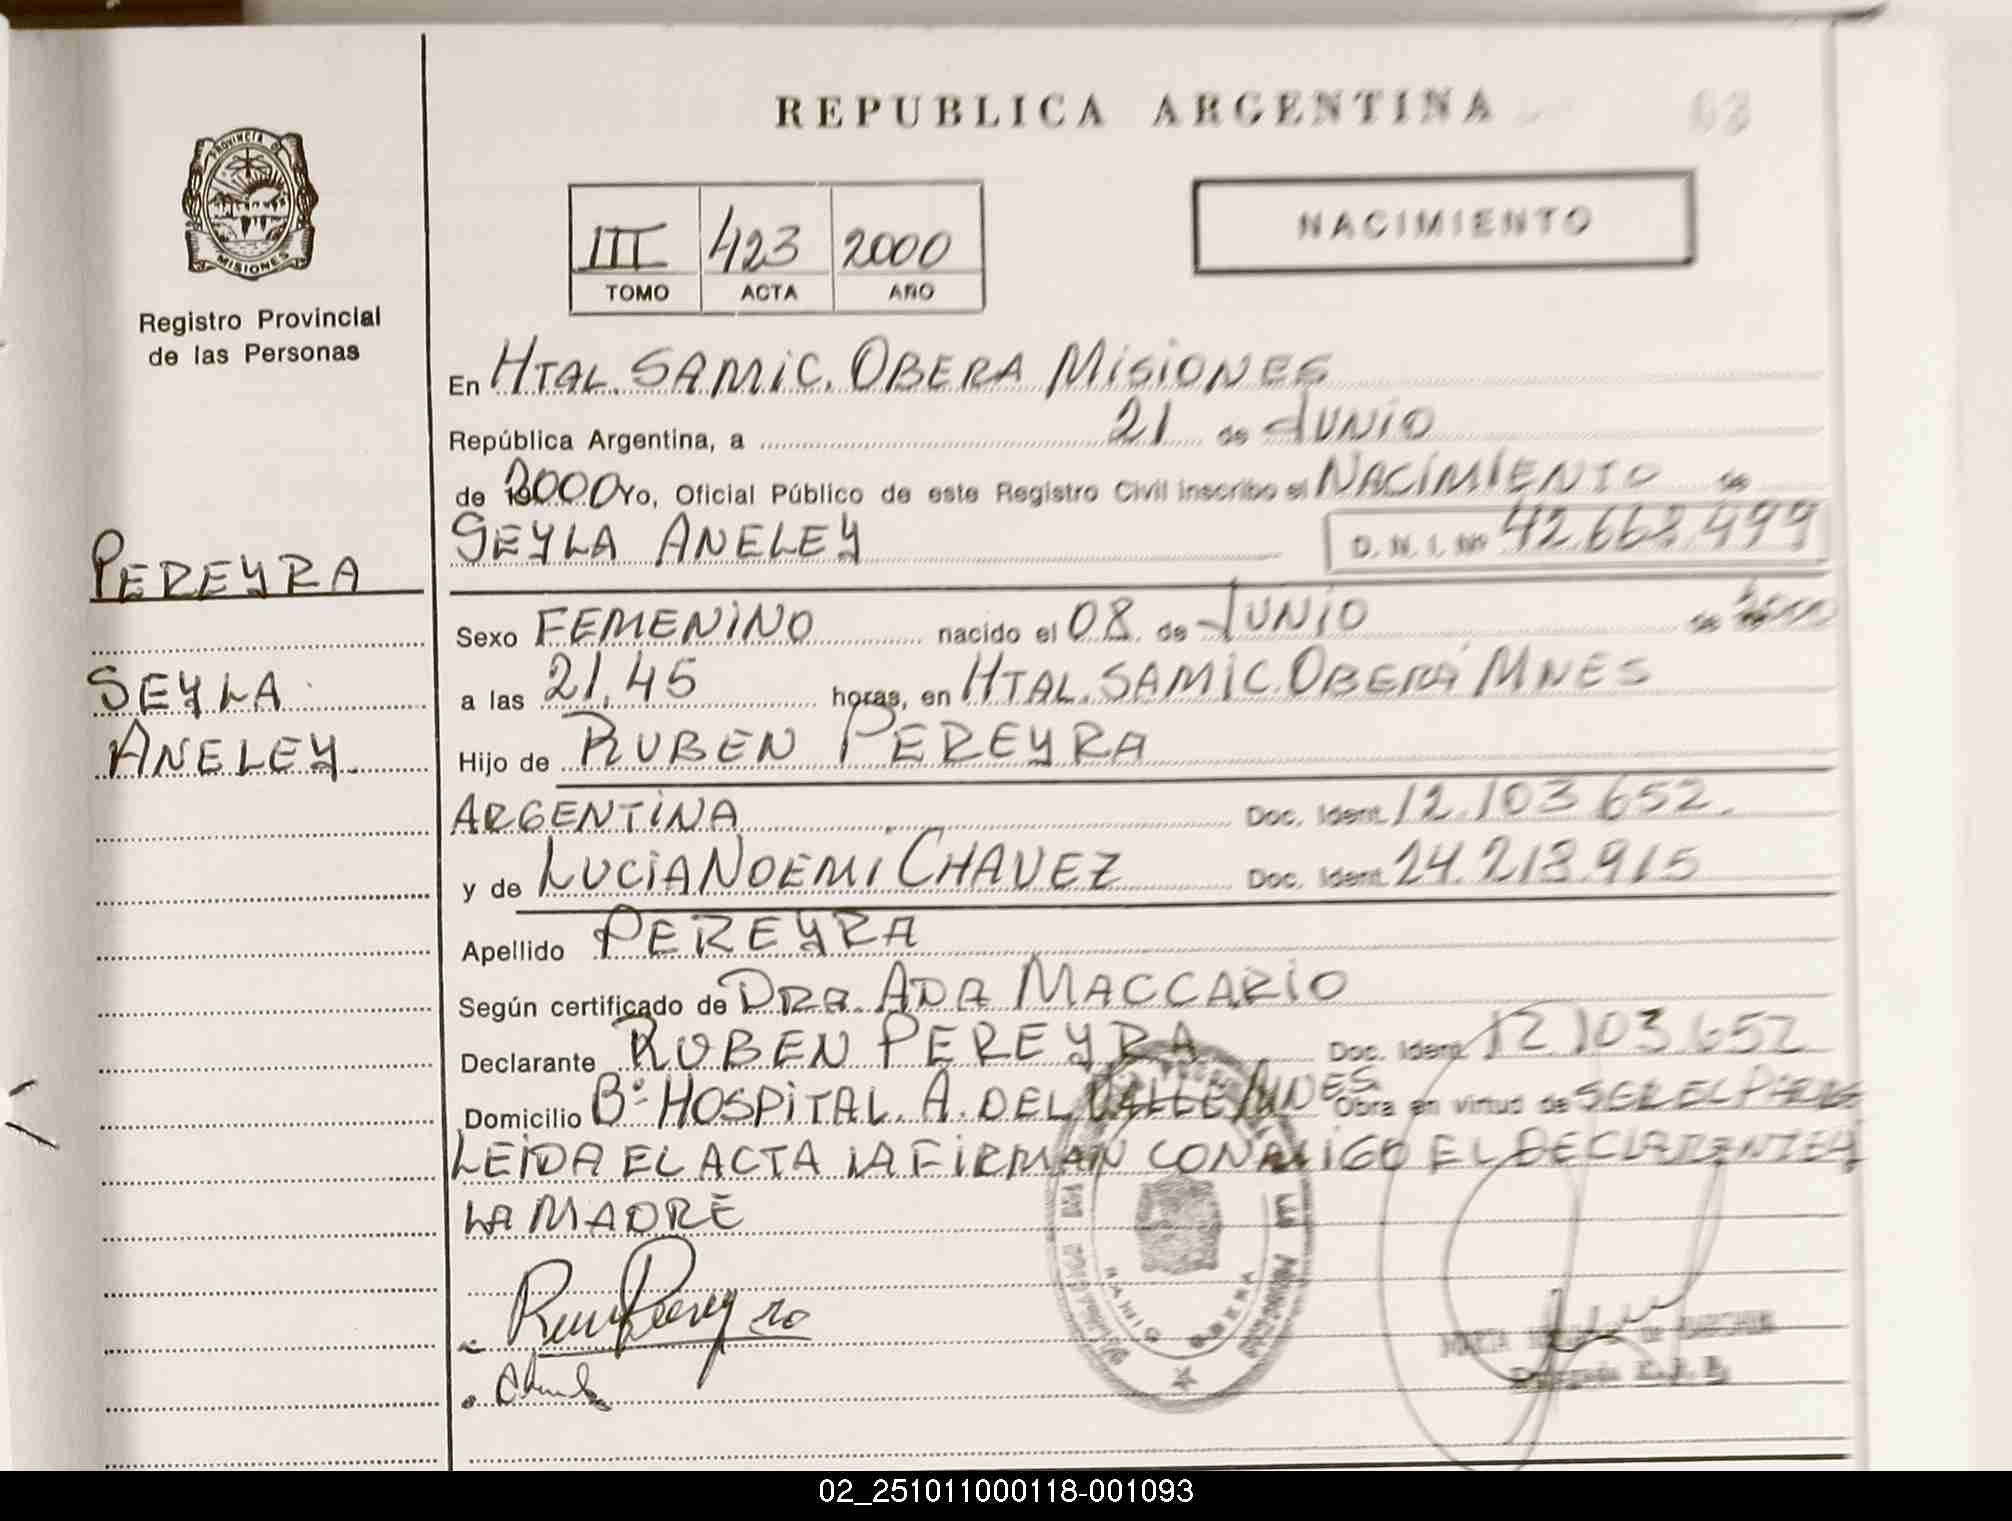 REPUBLICA ARGENTINA
63
PROVINCIA DE
MISIONES
Registro Provincial
de las Personas
III 423 2000
TOMO ACTA AÑO
NACIMIENTO
En HTAL. SAMIC. OBERA MISIONES
República Argentina, a 21 de JUNIO
de 2000 Yo, Oficial Público de este Registro Civil inscribo el NACIMIENTO de
SEYLA ANELEY D. N. I. Nº 42.663.499
PEREYRA
SEYLA
ANELEY
Sexo FEMENINO nacido el 08 de JUNIO de 2000
a las 21.45 horas, en HTAL. SAMIC. OBERÁ MNES
Hijo de RUBEN PEREYRA
ARGENTINA Doc. Ident. 12.103.652.
y de LUCIA NOEMI CHAVEZ Doc. Ident. 24.218.915
Apellido PEREYRA
Según certificado de DRA. ADA MACCARIO
Declarante RUBEN PEREYRA Doc. Ident. 12.103.652
Domicilio Bº HOSPITAL. A. DEL VALLE MNES Obra en virtud de SER EL PADRE
LEIDA EL ACTA LA FIRMAN CONMIGO EL DECLARANTE Y
LA MADRE
OBERA
02_251011000118-001093